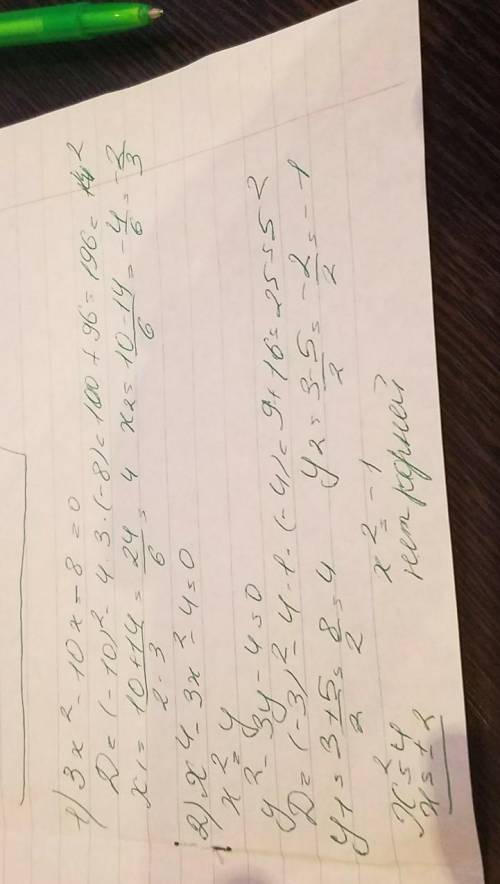 1) 3x² - 10x - 8 = 0
D = (-10)² - 4 · 3 · (-8) = 100 + 96 = 196 = 14²
x1 = 10+14/2·3 = 24/6 = 4 x2 = 10-14/6 = -4/6 = -2/3
2) x⁴ - 3x² - 4 = 0
x² = y
y² - 3y - 4 = 0
D = (-3)² - 4 · 1 · (-4) = 9 + 16 = 25 = 5²
y1 = 3+5/2 = 8/2 = 4 y2 = 3-5/2 = -2/2 = -1
x² = 4 x² = -1
x = ±2 нет корней